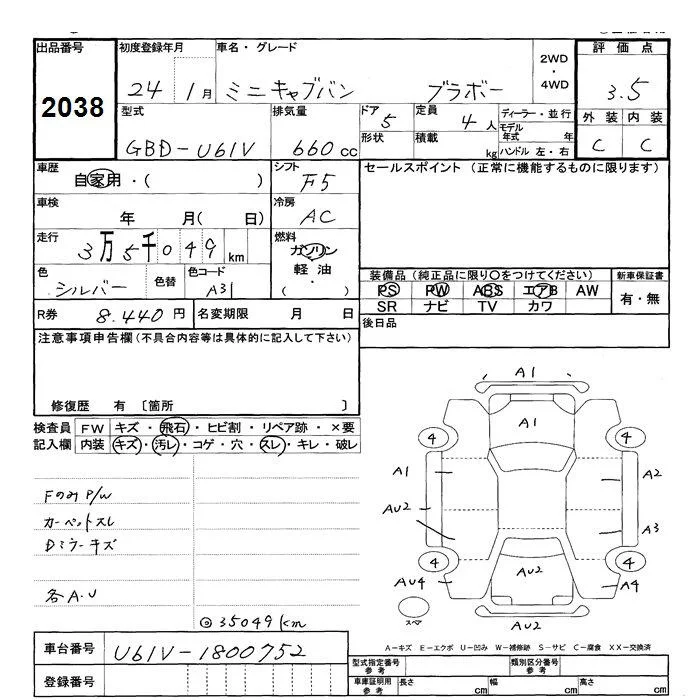 出品番号 2038
初度登録年月 24 1月
車名・グレード ミニキャブバン ブラボー
2WD・4WD
評価点 3.5
外装 C 内装 C
型式 GBD-U61V
排気量 660cc
ドア 5 形状
定員 4人 積載 kg
ディーラー・並行
モデル年式 年
ハンドル 左・右
車歴 自家用・( )
シフト F5
セールスポイント (正常に機能するものに限ります)
車検 年 月( 日)
冷房 AC
走行 3万5千049km
燃料 ガソリン 軽油 ・( )
色 シルバー 色替 色コード A31
装備品(純正品に限り○をつけてください)
新車保証書 有・無
PS PW ABS エアB AW
SR ナビ TV カワ
R券 8.440円 名変期限 月 日
後日品
注意事項申告欄(不具合内容等は具体的に記入して下さい)
修復歴 有 〔箇所 〕
検査員記入欄
FW キズ・飛石・ヒビ割・リペア跡・×要
内装 キズ・汚レ・コゲ・穴・スレ・キレ・破レ
Fのみ P/W
カーペットスレ
Dミラーキズ
各A.U
◎35049km
A1
A1
4 4
A1 A2
AU2 A3
4 4
AU4 AU2 A4
スペア AU2
A-キズ E-エクボ U-凹み W-補修跡 S-サビ C-腐食 XX-交換済
車台番号 U61V-1800752
登録番号
型式指定番号 参考 類別区分番号 参考
車庫証明用 参考 長さ cm 幅 cm 高さ cm